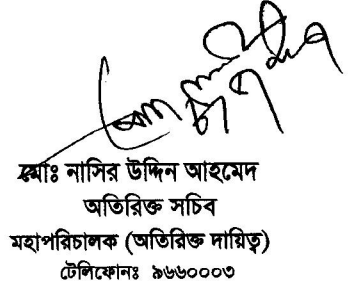 মোঃ নাসির উদ্দিন আহমেদ
অতিরিক্ত সচিব
মহাপরিচালক (অতিরিক্ত দায়িত্ব)
টেলিফোনঃ ৯৬৬০০০৩